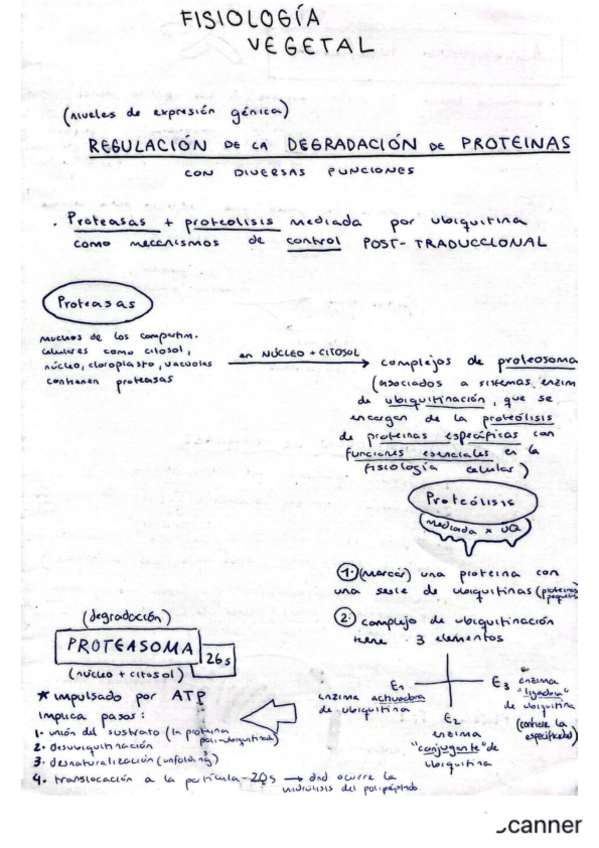 FISIOLOGÍA
VEGETAL
(niveles de expresión génica)
REGULACIÓN DE LA DEGRADACIÓN DE PROTEINAS
CON DIVERSAS FUNCIONES
. Proteasas + proteolisis mediada por ubiquitina
como mecanismos de control POST-TRADUCCIONAL
Proteasas
muchos de los compartim.
celulares como citosol,
núcleo, cloroplasto, vacuolas
contienen proteasas
en NÚCLEO + CITOSOL
complejos de proteosoma
(asociados a sistemas enzim
de ubiquitinación, que se
encargan de la proteólisis
de proteinas específicas con
funciones esenciales en la
fisciología celular)
Proteólisis
mediada x UQ
1. (marcar) una proteina con
una serie de ubiquitinas (proteinas
pequeñas
2. complejo de ubiquitinación
tiene 3 elementos
E1
enzima activadora
de ubiquitina
E2
enzima
"conjugante" de
ubiquitina
E3 enzima
"ligadora"
de ubiquitina
(controle la
especificidad)
(degradoción)
PROTEASOMA
26s
(núcleo + citosol)
* impulsado por ATP
implica pasos:
1. unión del sustrato (la proteina
poli-ubiquitinada)
2. desubiquitinación
3. desnaturalización (unfolding)
4. translocación a la partícula-20s → dnd ocurre la
hidrólisis del polipéptido
canner